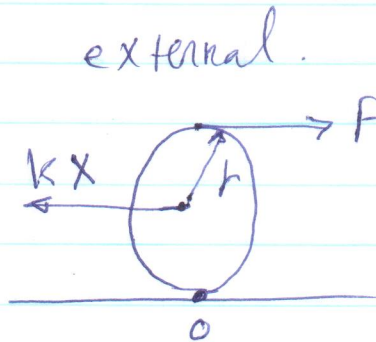 external.
F
kX
r
O